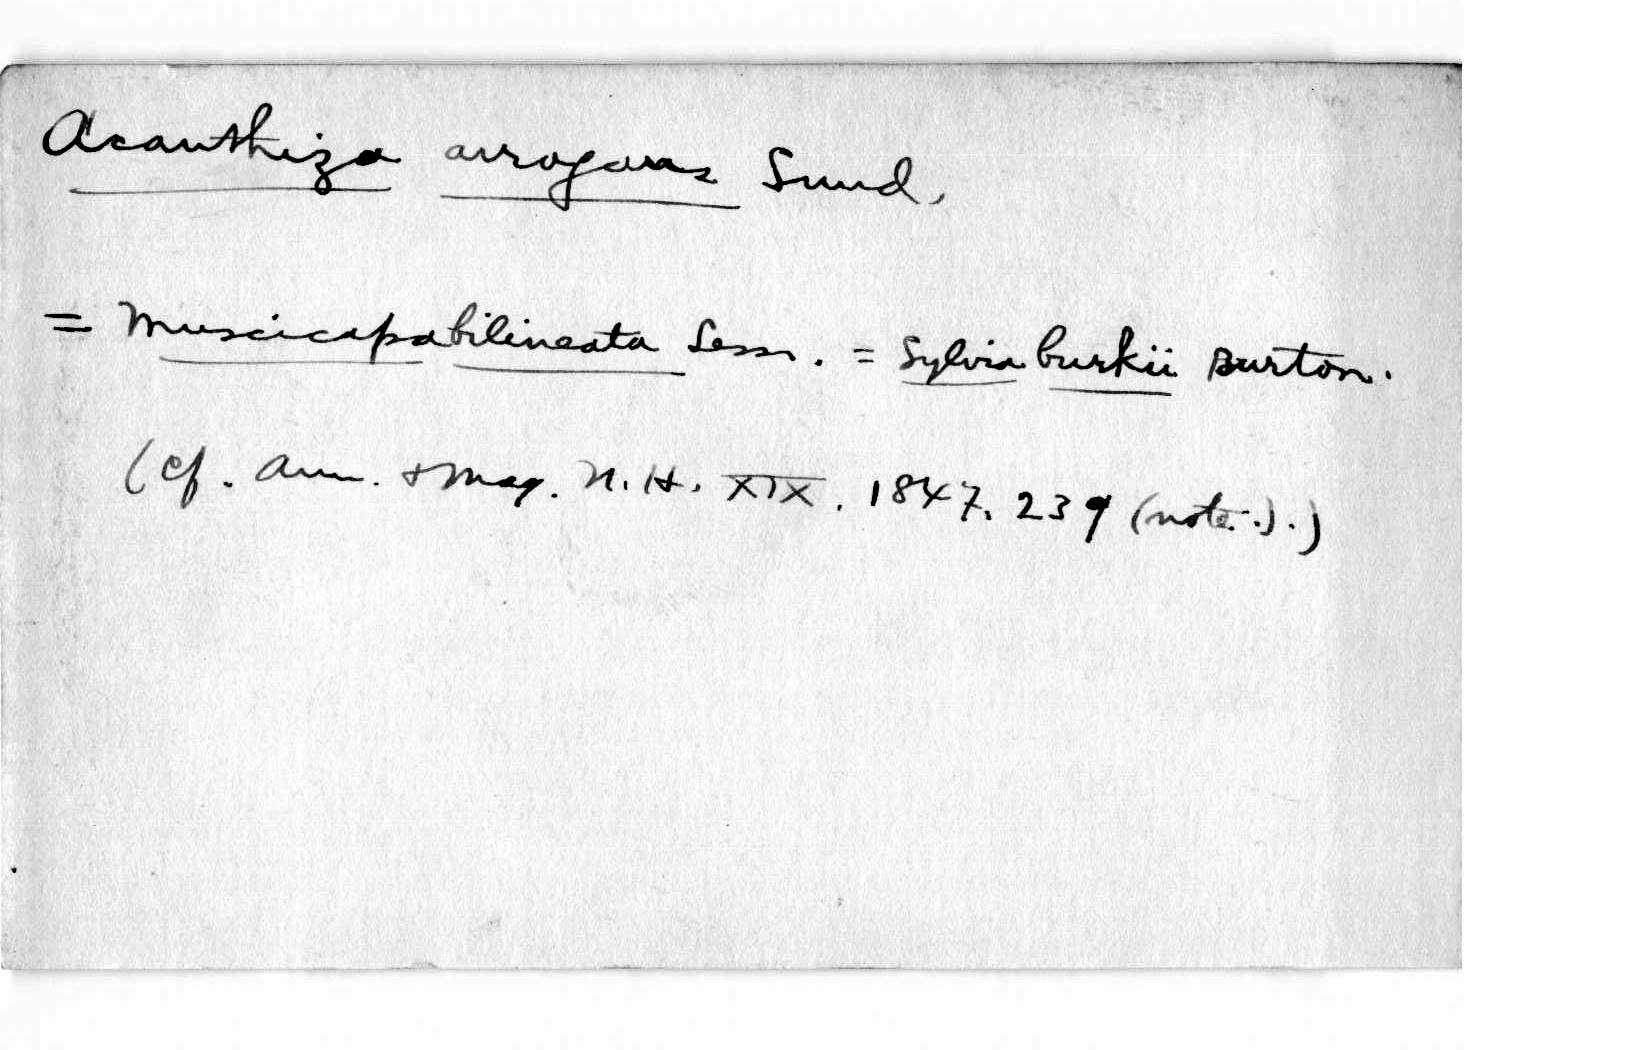 Acanthiza arrogans Sund.
= Muscicapa bilineata Less. = Sylvia burkii Burton.
(Cf. Ann. & Mag. N. H. XIX. 1847. 239 (note.).)